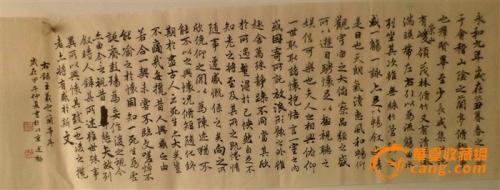 永和九年歲在丑暮春之
于會稽山陰之蘭亭脩
也群賢畢至少長咸集
有峻領茂林脩竹又有
湍暎帶左右引以為流
列坐其次雖無絲竹管
盛一觴一詠亦足以暢敘
是日也天朗氣清惠風和暢仰
觀宇宙之大俯察品類之盛
所以遊目騁懷足以極視聽之
娛信可樂也夫人之相與俯仰
一世或取諸懷抱悟言一室之內
或因寄所託放浪形骸之外雖
趣舍萬殊靜躁不同當其欣
於所遇蹔得於己快然自足不
知老之將至及其所之既惓情
隨事遷感慨係之矣向之所
欣俛仰之間以為陳迹猶不
能不以之興懷況脩短隨化終
期於盡古人云死生亦大矣豈
不痛哉每攬昔人興感之由
若合一契未嘗不臨文嗟悼不
能喻之於懷固知一死生為虛
誕齊彭殤為妄作後之視今
亦由今之視昔悲夫故列
敘時人錄其所述雖世殊事
異所以興懷其致一也後之攬
者亦將有感於斯文
右錄王羲之蘭亭序
歲在甲午仲夏書
华夏收藏网
cang.com